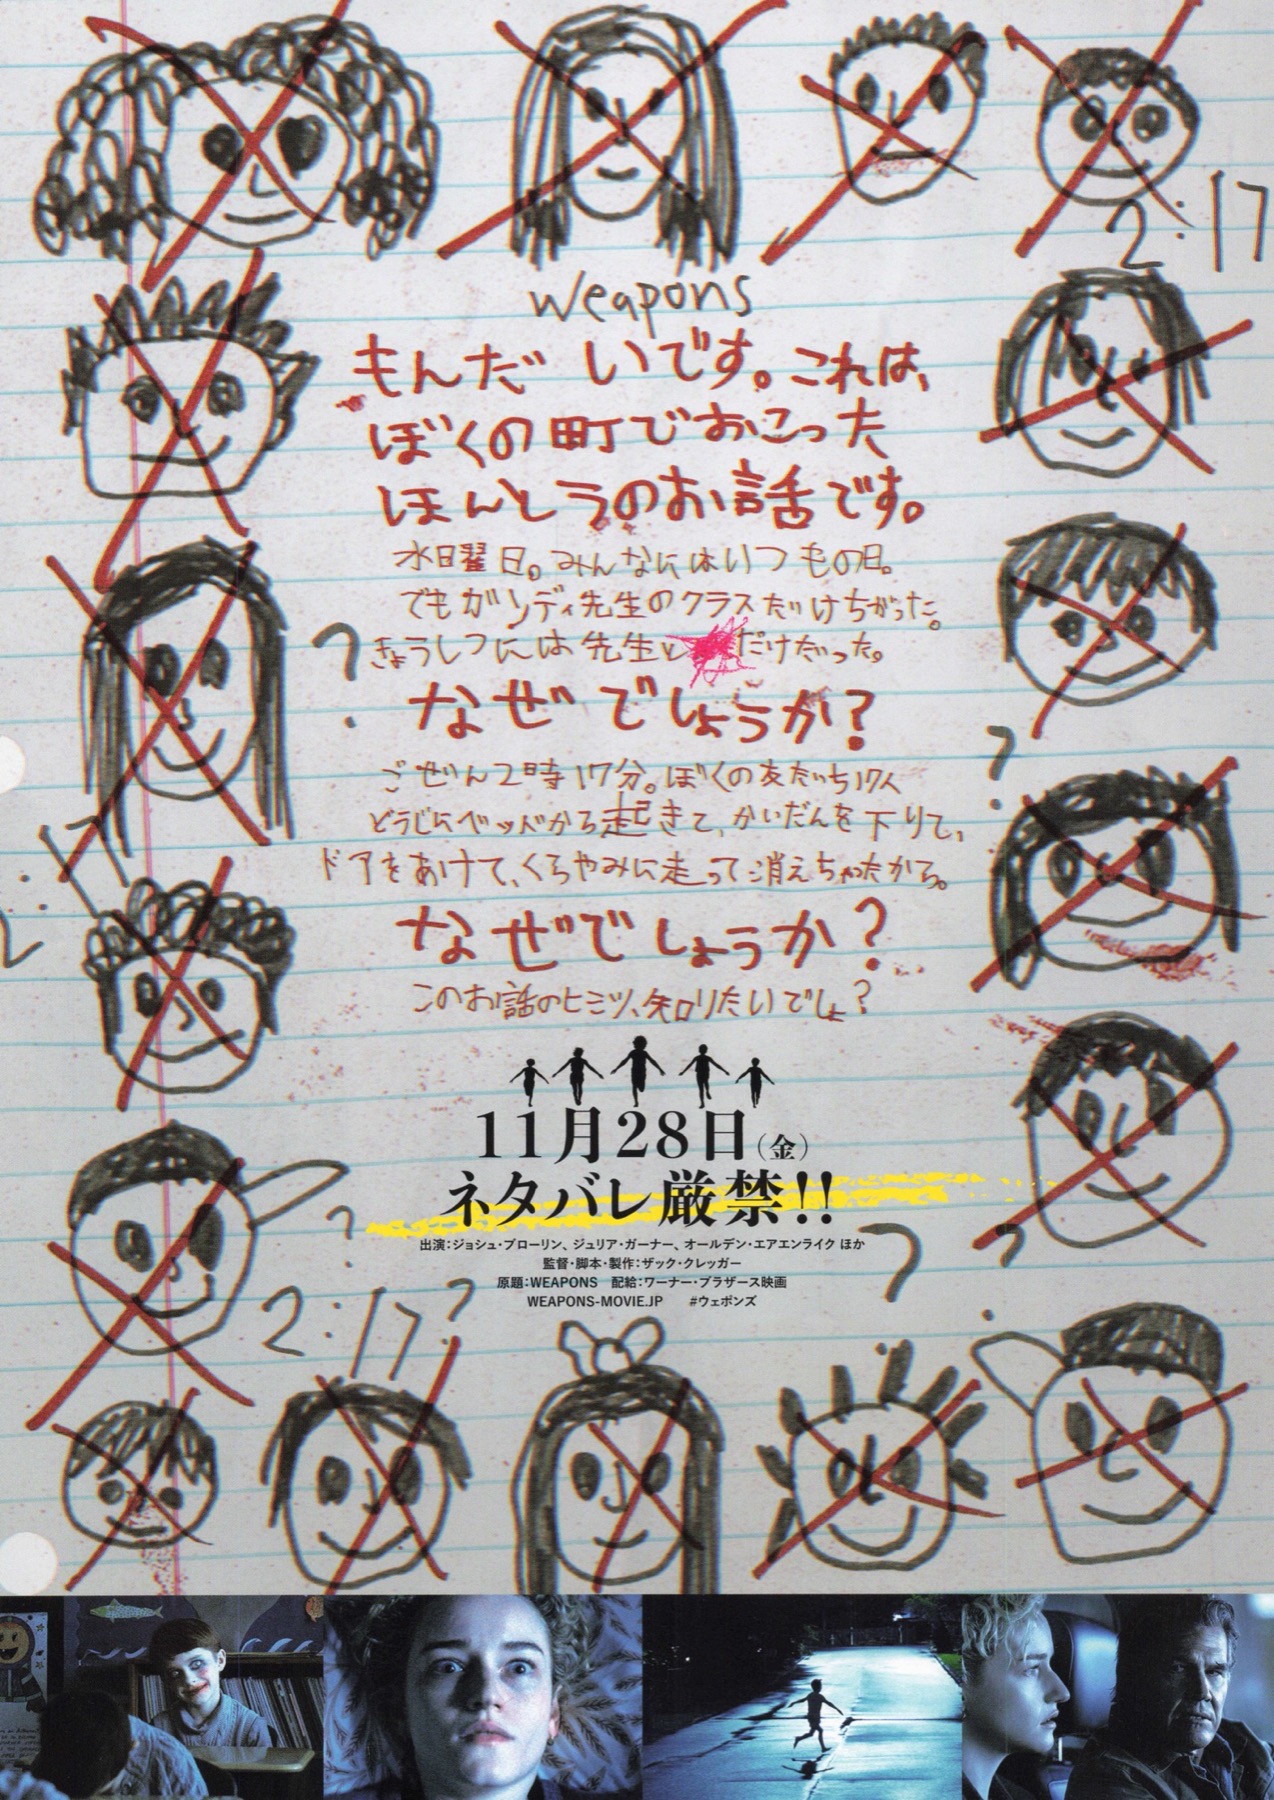 2:17
Weapons
もんだいです。これは、
ぼくの町でおこった
ほんとうのお話です。
水曜日。みんなにはいつもの日。
でもガンディ先生のクラスだけちがった。
?
きょうしつには先生と だけだった。
なぜでしょうか?
?
ごぜん2時17分。ぼくの友だち17人
どうじにベッドから起きて、かいだんを下りて、
2:17
ドアをあけて、くらやみに走って消えちゃったから。
なぜでしょうか?
このお話のヒミツ、知りたいでしょ?
11月28日(金)
ネタバレ厳禁!!
?
?
出演:ジョシュ・ブローリン、ジュリア・ガーナー、オールデン・エアエンライク ほか
監督・脚本・製作:ザック・クレッガー
原題:WEAPONS 配給:ワーナー・ブラザース映画
WEAPONS-MOVIE.JP #ウェポンズ
2:17?